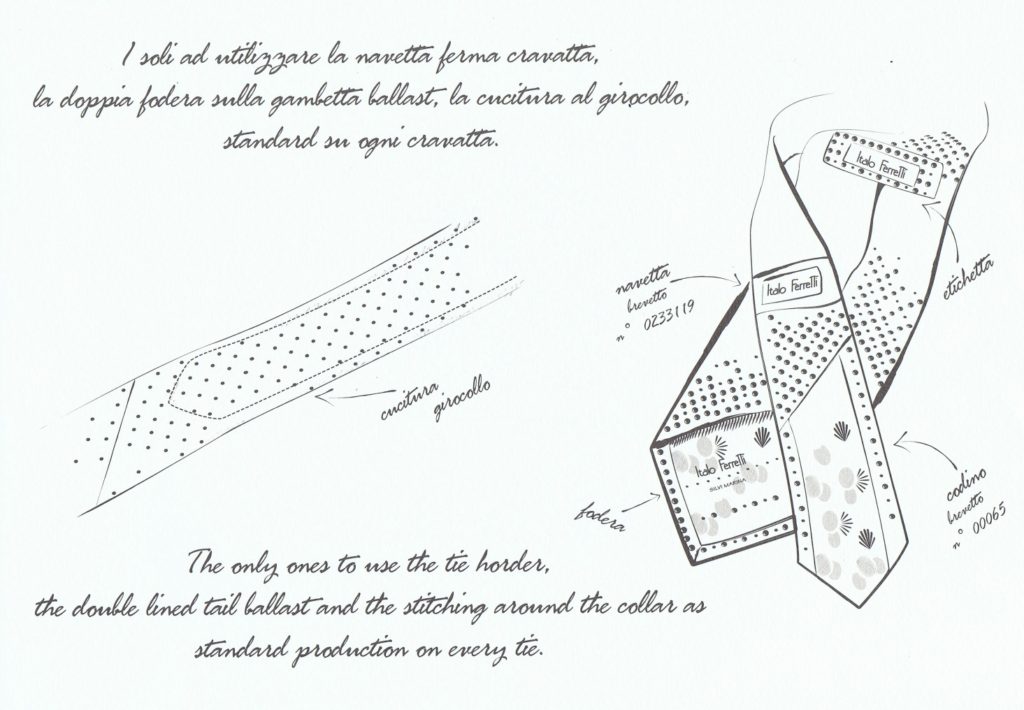 I soli ad utilizzare la navetta ferma cravatta,
la doppia fodera sulla gambetta ballast, la cucitura al girocollo,
standard su ogni cravatta.
Italo Ferretti
etichetta
navetta
brevetto
n° 0233119
Italo Ferretti
cucitura
girocollo
Italo Ferretti
SILVI MARINA
fodera
codino
brevetto
n° 00065
The only ones to use the tie horder,
the double lined tail ballast and the stitching around the collar as
standard production on every tie.